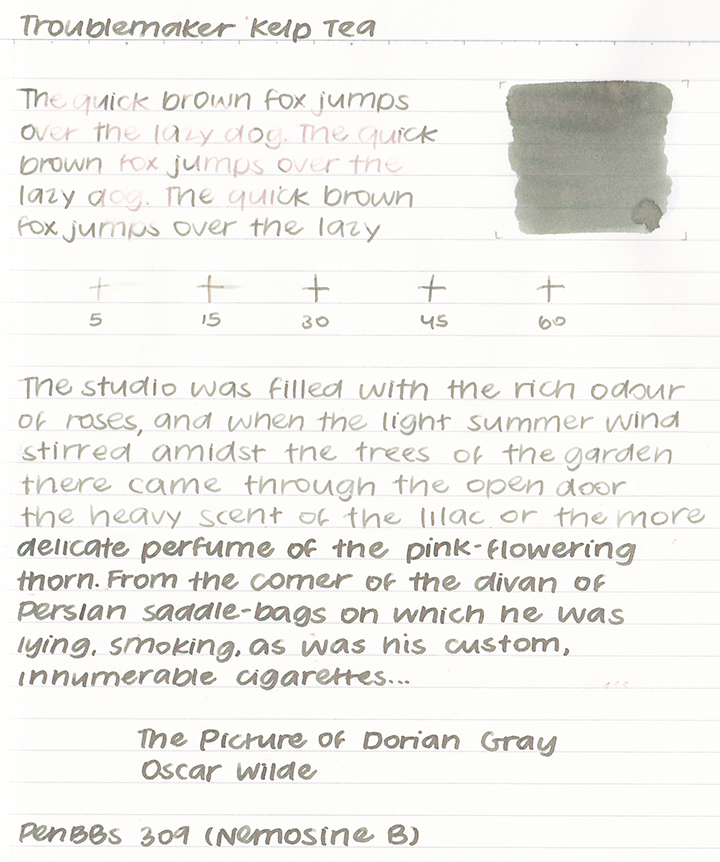 Troublemaker Kelp Tea
The quick brown fox jumps
over the lazy dog. The quick
brown fox jumps over the
lazy dog. The quick brown
fox jumps over the lazy
5 15 30 45 60
The studio was filled with the rich odour
of roses, and when the light summer wind
stirred amidst the trees of the garden
there came through the open door
the heavy scent of the lilac or the more
delicate perfume of the pink-flowering
thorn. From the corner of the divan of
Persian saddle-bags on which he was
lying, smoking, as was his custom,
innumerable cigarettes...
The Picture of Dorian Gray
Oscar Wilde
PenBBs 309 (Nemosine B)